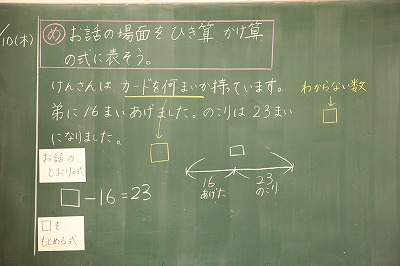 10(木)
め お話の場面を ひき算 かけ算
の式に表そう。
けんさんは カードを何まいか持ています。
弟に16まいあげました。のこりは23まい
になりました。
わからない数
□
□
お話の
とおりの式
□-16=23
□を
もとめる式
□
16
あげた
23
のこり